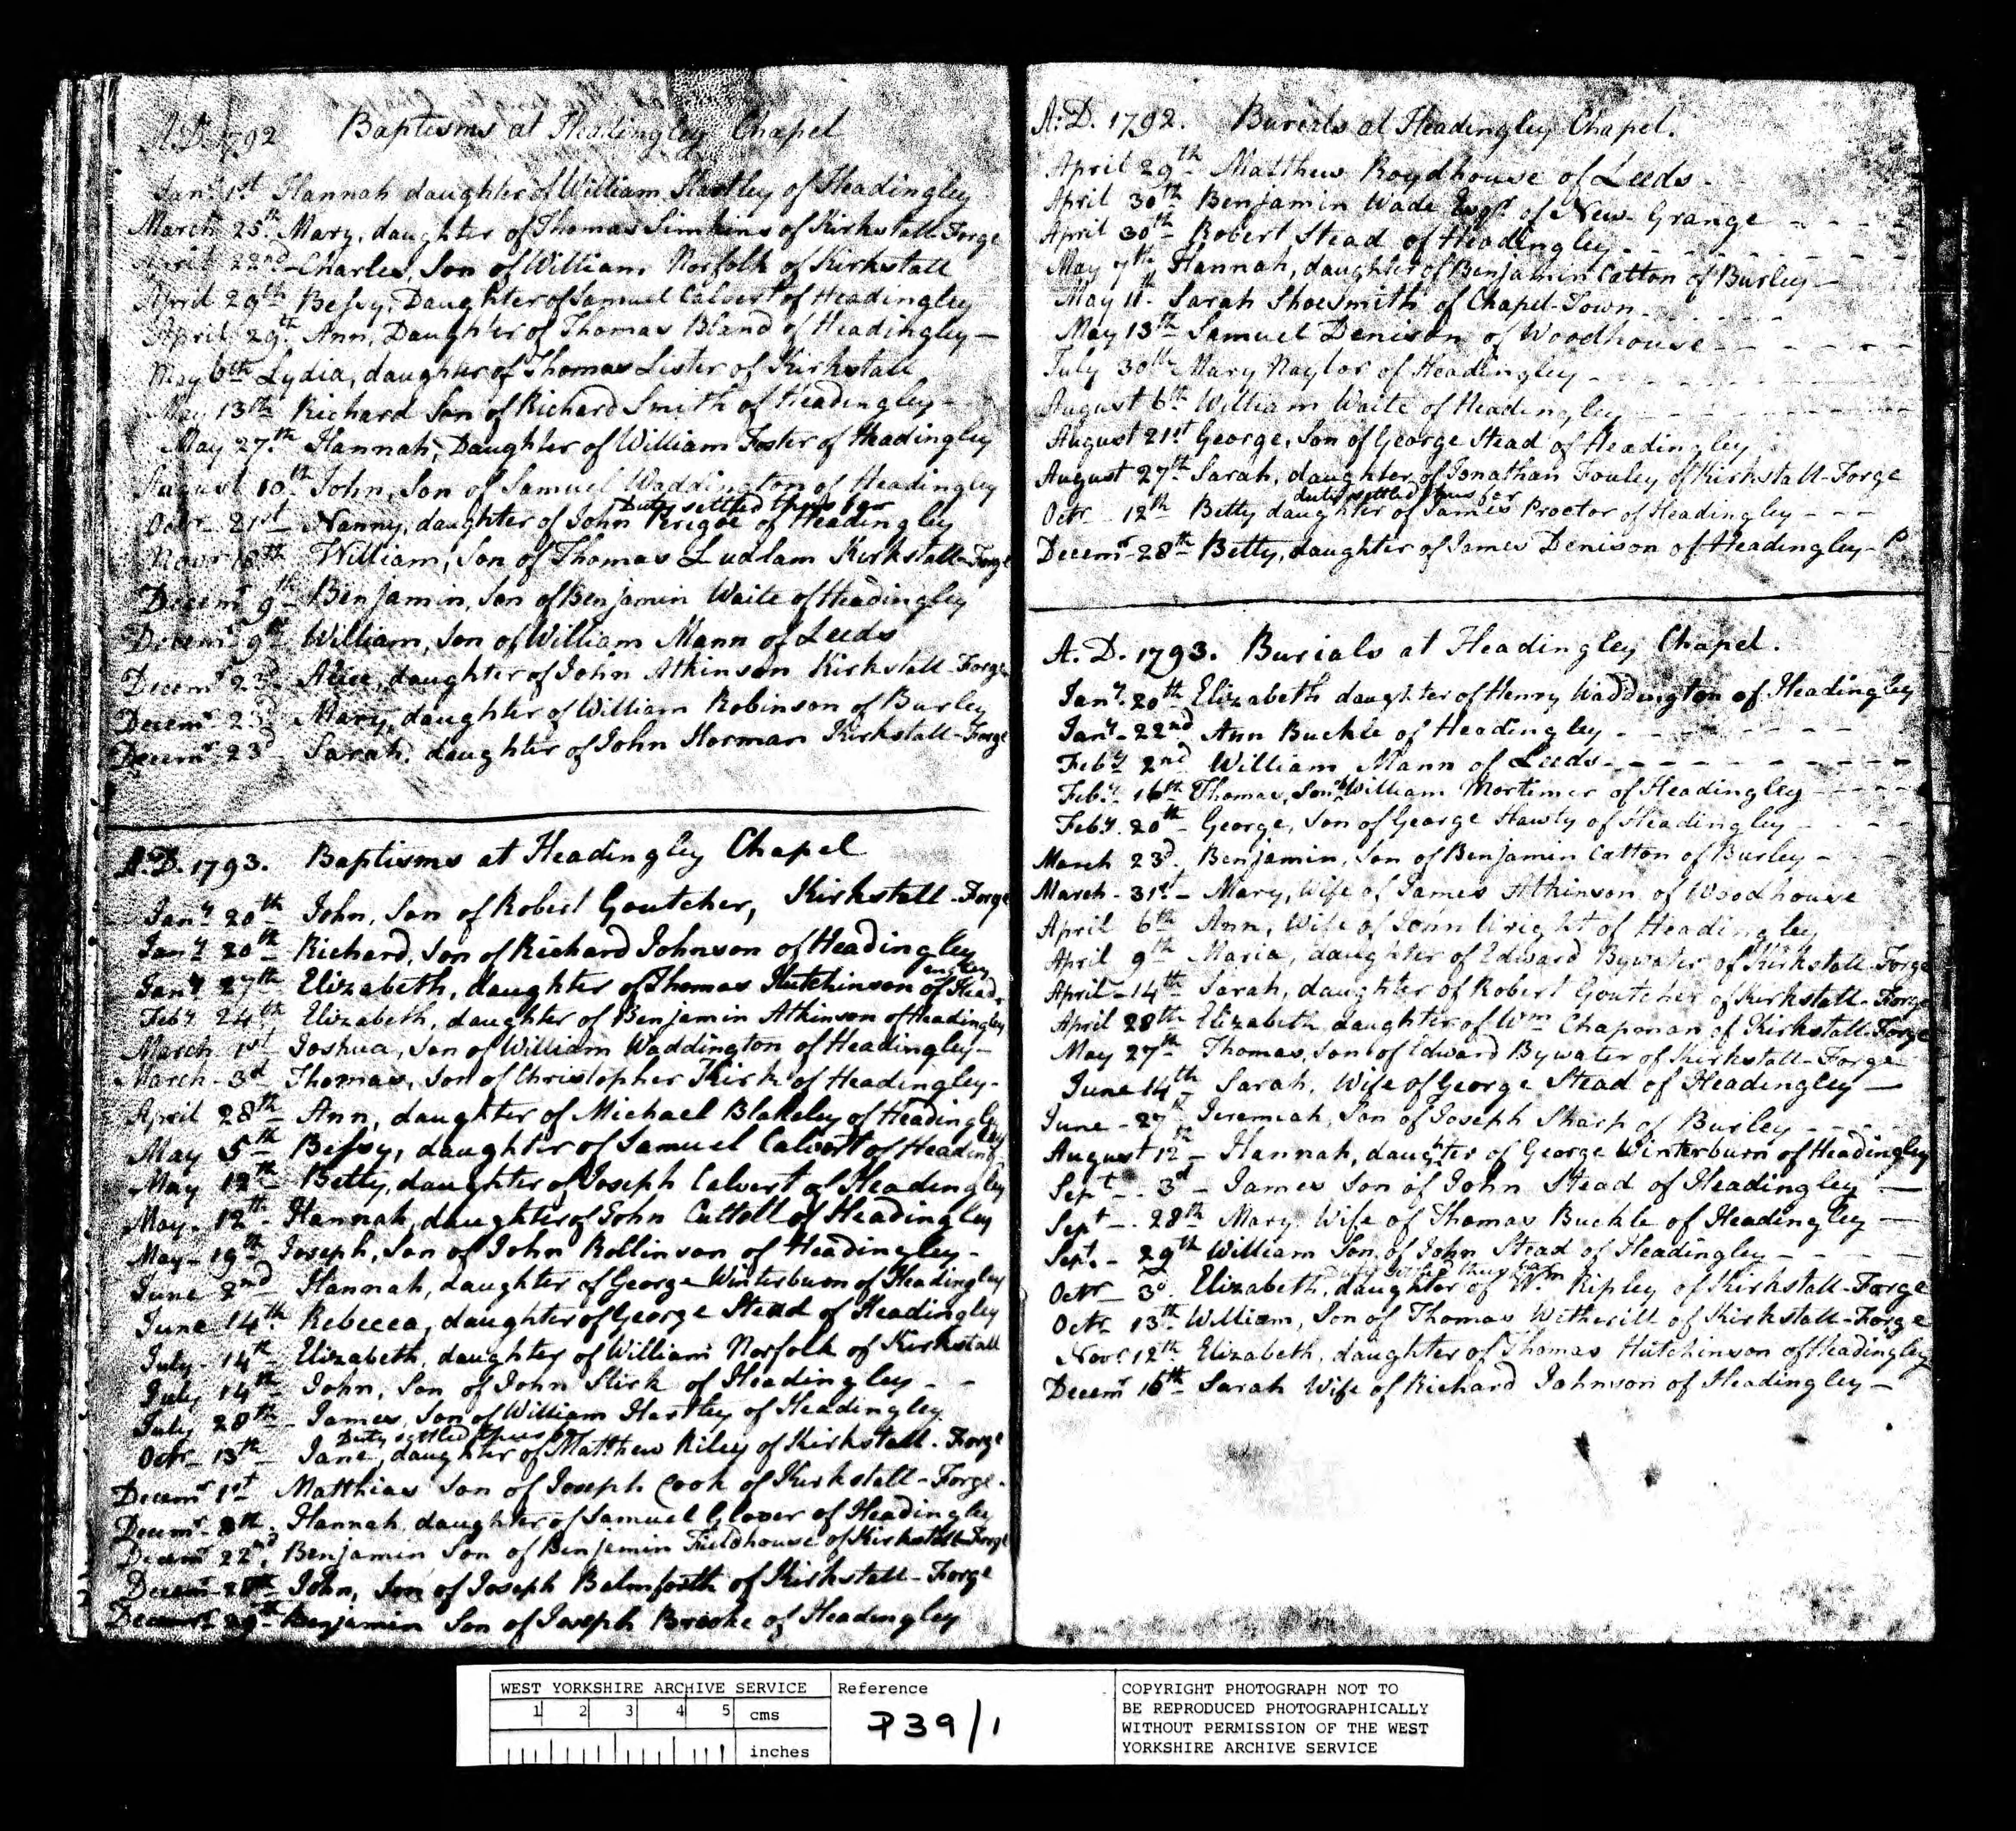 A.D. 1792 Baptisms at Headingley Chapel
Jany. 1st Hannah daughter of William Hartley of Headingley
March 25th Mary, daughter of Thomas Simkins of Kirkstall-Forge
April 22nd Charles, Son of William Norfolk of Kirkstall
April 29th Bessy, Daughter of Samuel Calvert of Headingley
April 29th Ann, Daughter of Thomas Bland of Headingley
May 6th Lydia, daughter of Thomas Lister of Kirkstall
May 13th Richard Son of Richard Smith of Headingley
May 27th Hannah, Daughter of William Foster of Headingley
August 10th John, Son of Samuel Waddington of Headingley
Duty settled thus far
Octr 21st Nanny, daughter of John Perigoe of Headingley
Novr 18th William, Son of Thomas Ludlam Kirkstall-Forge
Decemr 9th Benjamin, Son of Benjamin Waite of Headingley
Decemr 9th William, Son of William Mann of Leeds
Decemr 23d Alice, daughter of John Atkinson Kirkstall-Forge
Decemr 23d Mary, daughter of William Robinson of Burley
Decemr 23d Sarah, daughter of John Horman Kirkstall-Forge
A.D. 1793. Baptisms at Headingley Chapel
Jany 20th John, Son of Robert Goutcher, Kirkstall-Forge
Jany 20th Richard, Son of Richard Johnson of Headingley
Jany 27th Elizabeth, daughter of Thomas Hutchinson of Headingley
Feby 24th Elizabeth, daughter of Benjamin Atkinson of Headingley
March 1st Joshua, Son of William Waddington of Headingley
March 3d Thomas, Son of Christopher Kirk of Headingley
April 28th Ann, daughter of Michael Blakeley of Headingley
May 5th Bessy, daughter of Samuel Calvert of Headingley
May 12th Betty, daughter of Joseph Calvert of Headingley
May 12th Hannah, daughter of John Cuttell of Headingley
May 19th Joseph, Son of John Rollinson of Headingley
June 2nd Hannah, daughter of George Winterburn of Headingley
June 14th Rebecca, daughter of George Stead of Headingley
July 14th Elizabeth, daughter of William Norfolk of Kirkstall
July 14th John, Son of John Stirk of Headingley
July 28th James, Son of William Hartley of Headingley
Duty settled thus far
Octr 13th Jane, daughter of Matthew Riley of Kirkstall-Forge
Decemr 1st Matthias Son of Joseph Cook of Kirkstall-Forge
Decemr 8th Hannah daughter of Samuel Glover of Headingley
Decemr 22nd Benjamin Son of Benjamin Fieldhouse of Kirkstall-Forge
Decemr John, Son of Joseph Balmforth of Kirkstall-Forge
Decemr 29th Benjamin Son of Joseph Brooke of Headingley
A.D. 1792. Burials at Headingley Chapel.
April 29th Matthew Roydhouse of Leeds
April 30th Benjamin Wade Esqr. of New Grange
April 30th Robert Stead of Headingley
May 7th Hannah, daughter of Benjamin Catton of Burley
May 11th Sarah Shoesmith of Chapel-Town
May 13th Samuel Denison of Woodhouse
July 30th Mary Naylor of Headingley
August 6th William Waite of Headingley
August 21st George, Son of George Stead of Headingley
August 27th Sarah, daughter of Jonathan Fouley of Kirkstall-Forge
duty settled thus far
Octr 12th Betty daughter of James Proctor of Headingley
Decemr 28th Betty, daughter of James Denison of Headingley - P
A.D. 1793. Burials at Headingley Chapel.
Jany. 20th Elizabeth daughter of Henry Waddington of Headingley
Jany. 22nd Ann Buckle of Headingley
Feby 2nd William Mann of Leeds
Feby. 16th Thomas, Son of William Mortimer of Headingley
Feby. 20th George, Son of George Hawly of Headingley
March 23d. Benjamin, Son of Benjamin Catton of Burley
March 31st Mary, Wife of James Atkinson of Woodhouse
April 6th Ann, Wife of John Wright of Headingley
April 9th Maria, daughter of Edward Bywater of Kirkstall-Forge
April 14th Sarah, daughter of Robert Goutcher of Kirkstall-Forge
April 28th Elizabeth daughter of Wm Chapman of Kirkstall-Forge
May 27th Thomas, Son of Edward Bywater of Kirkstall-Forge
June 14th Sarah, Wife of George Stead of Headingley
June 27th Jeremiah, Son of Joseph Sharp of Burley
August 12th Hannah, daughter of George Winterburn of Headingley
Sept 3d James Son of John Stead of Headingley
Sept 28th Mary Wife of Thomas Buckle of Headingley
Sept. 29th William Son of John Stead of Headingley
Duty settled thus far
Octr 3d. Elizabeth, daughter of Wm. Ripley of Kirkstall-Forge
Octr 13th William, Son of Thomas Witherill of Kirkstall-Forge
Novr 12th Elizabeth, daughter of Thomas Hutchinson of Headingley
Decemr 16th Sarah Wife of Richard Johnson of Headingley
WEST YORKSHIRE ARCHIVE SERVICE
1 2 3 4 5 cms
inches
Reference
P39/1
COPYRIGHT PHOTOGRAPH NOT TO
BE REPRODUCED PHOTOGRAPHICALLY
WITHOUT PERMISSION OF THE WEST
YORKSHIRE ARCHIVE SERVICE